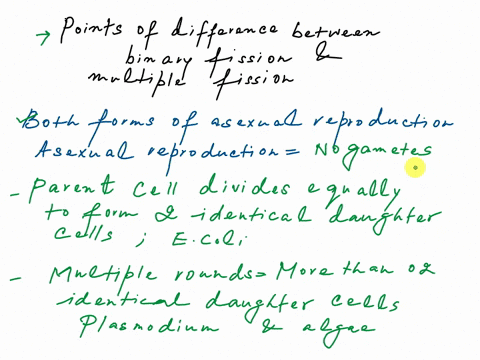 → Points of difference between
binary fission &
multiple fission
Both forms of asexual reproduction
Asexual reproduction = No gametes
- Parent cell divides equally
to form 2 identical daughter
cells ; E. Coli
- Multiple rounds = More than 02
identical daughter cells
Plasmodium & algae